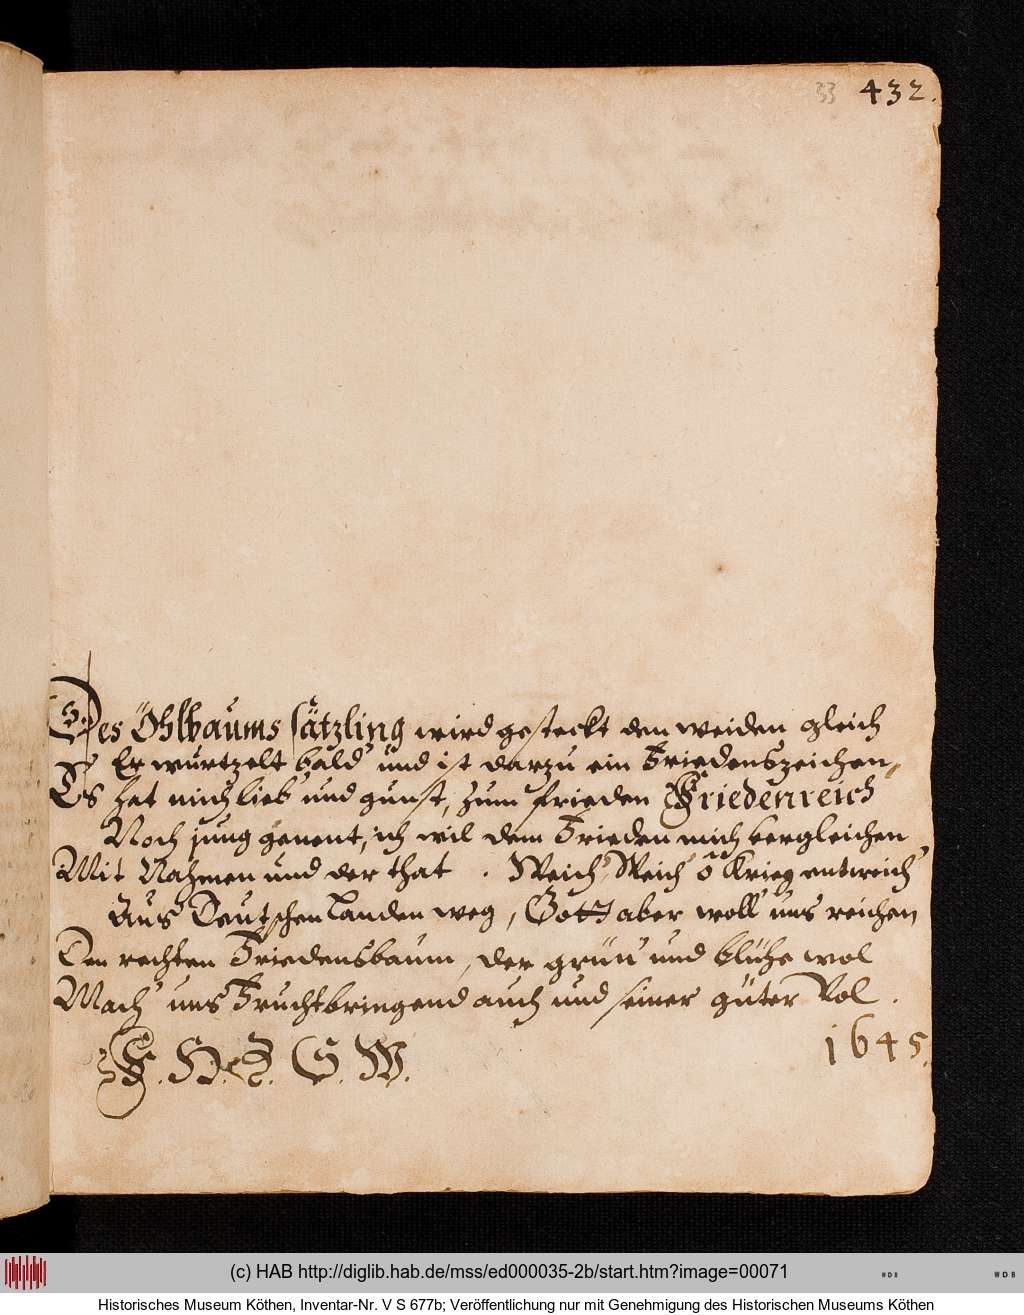 33 432.
Des Öhlbaums sätzling wird gesteckt den weiden gleich
Er wurtzelt bald und ist darzu ein Friedenszeichen,
Es hat mich lieb und gunst, zum frieden Friedenreich
Noch jung genent, ich wil dem Frieden mich vergleichen
Mit Nahmen und der that. Weich, Weich ô Krieg entweich
Aus Deutschen Landen weg, Gott aber woll uns reichen,
Den rechten Friedensbaum, der grün und blühe wol
Mach uns Fruchtbringend auch und seiner güter Vol.
F. H. Z. S. W.
1645.
(c) HAB http://diglib.hab.de/mss/ed000035-2b/start.htm?image=00071
WDB
WDB
Historisches Museum Köthen, Inventar-Nr. V S 677b; Veröffentlichung nur mit Genehmigung des Historischen Museums Köthen